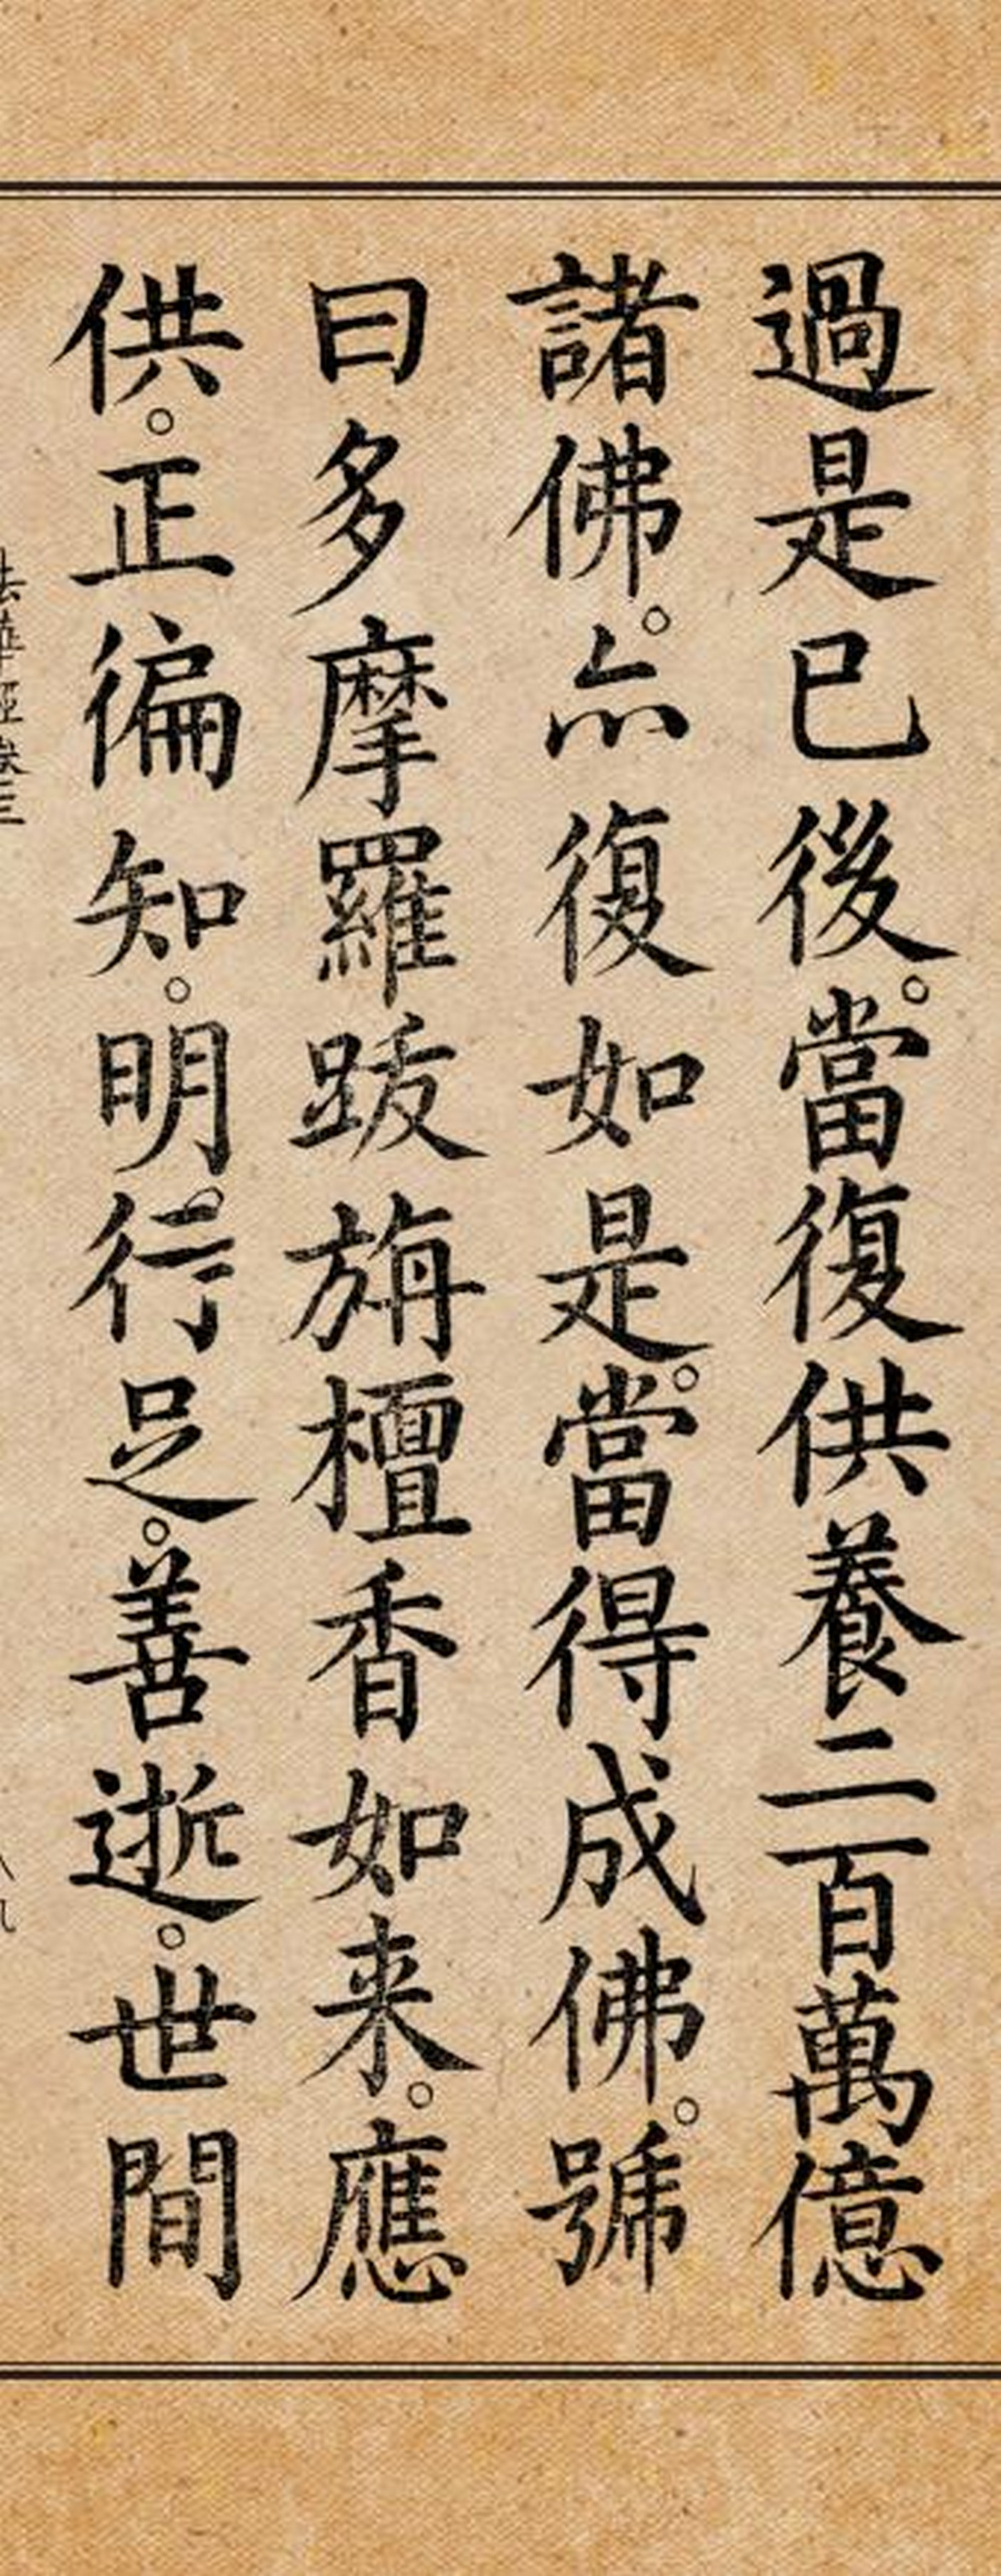 過是已後。當復供養二百萬億
諸佛。亦復如是。當得成佛。號
曰多摩羅跋旃檀香如来。應
供。正徧知。明行足。善逝。世間